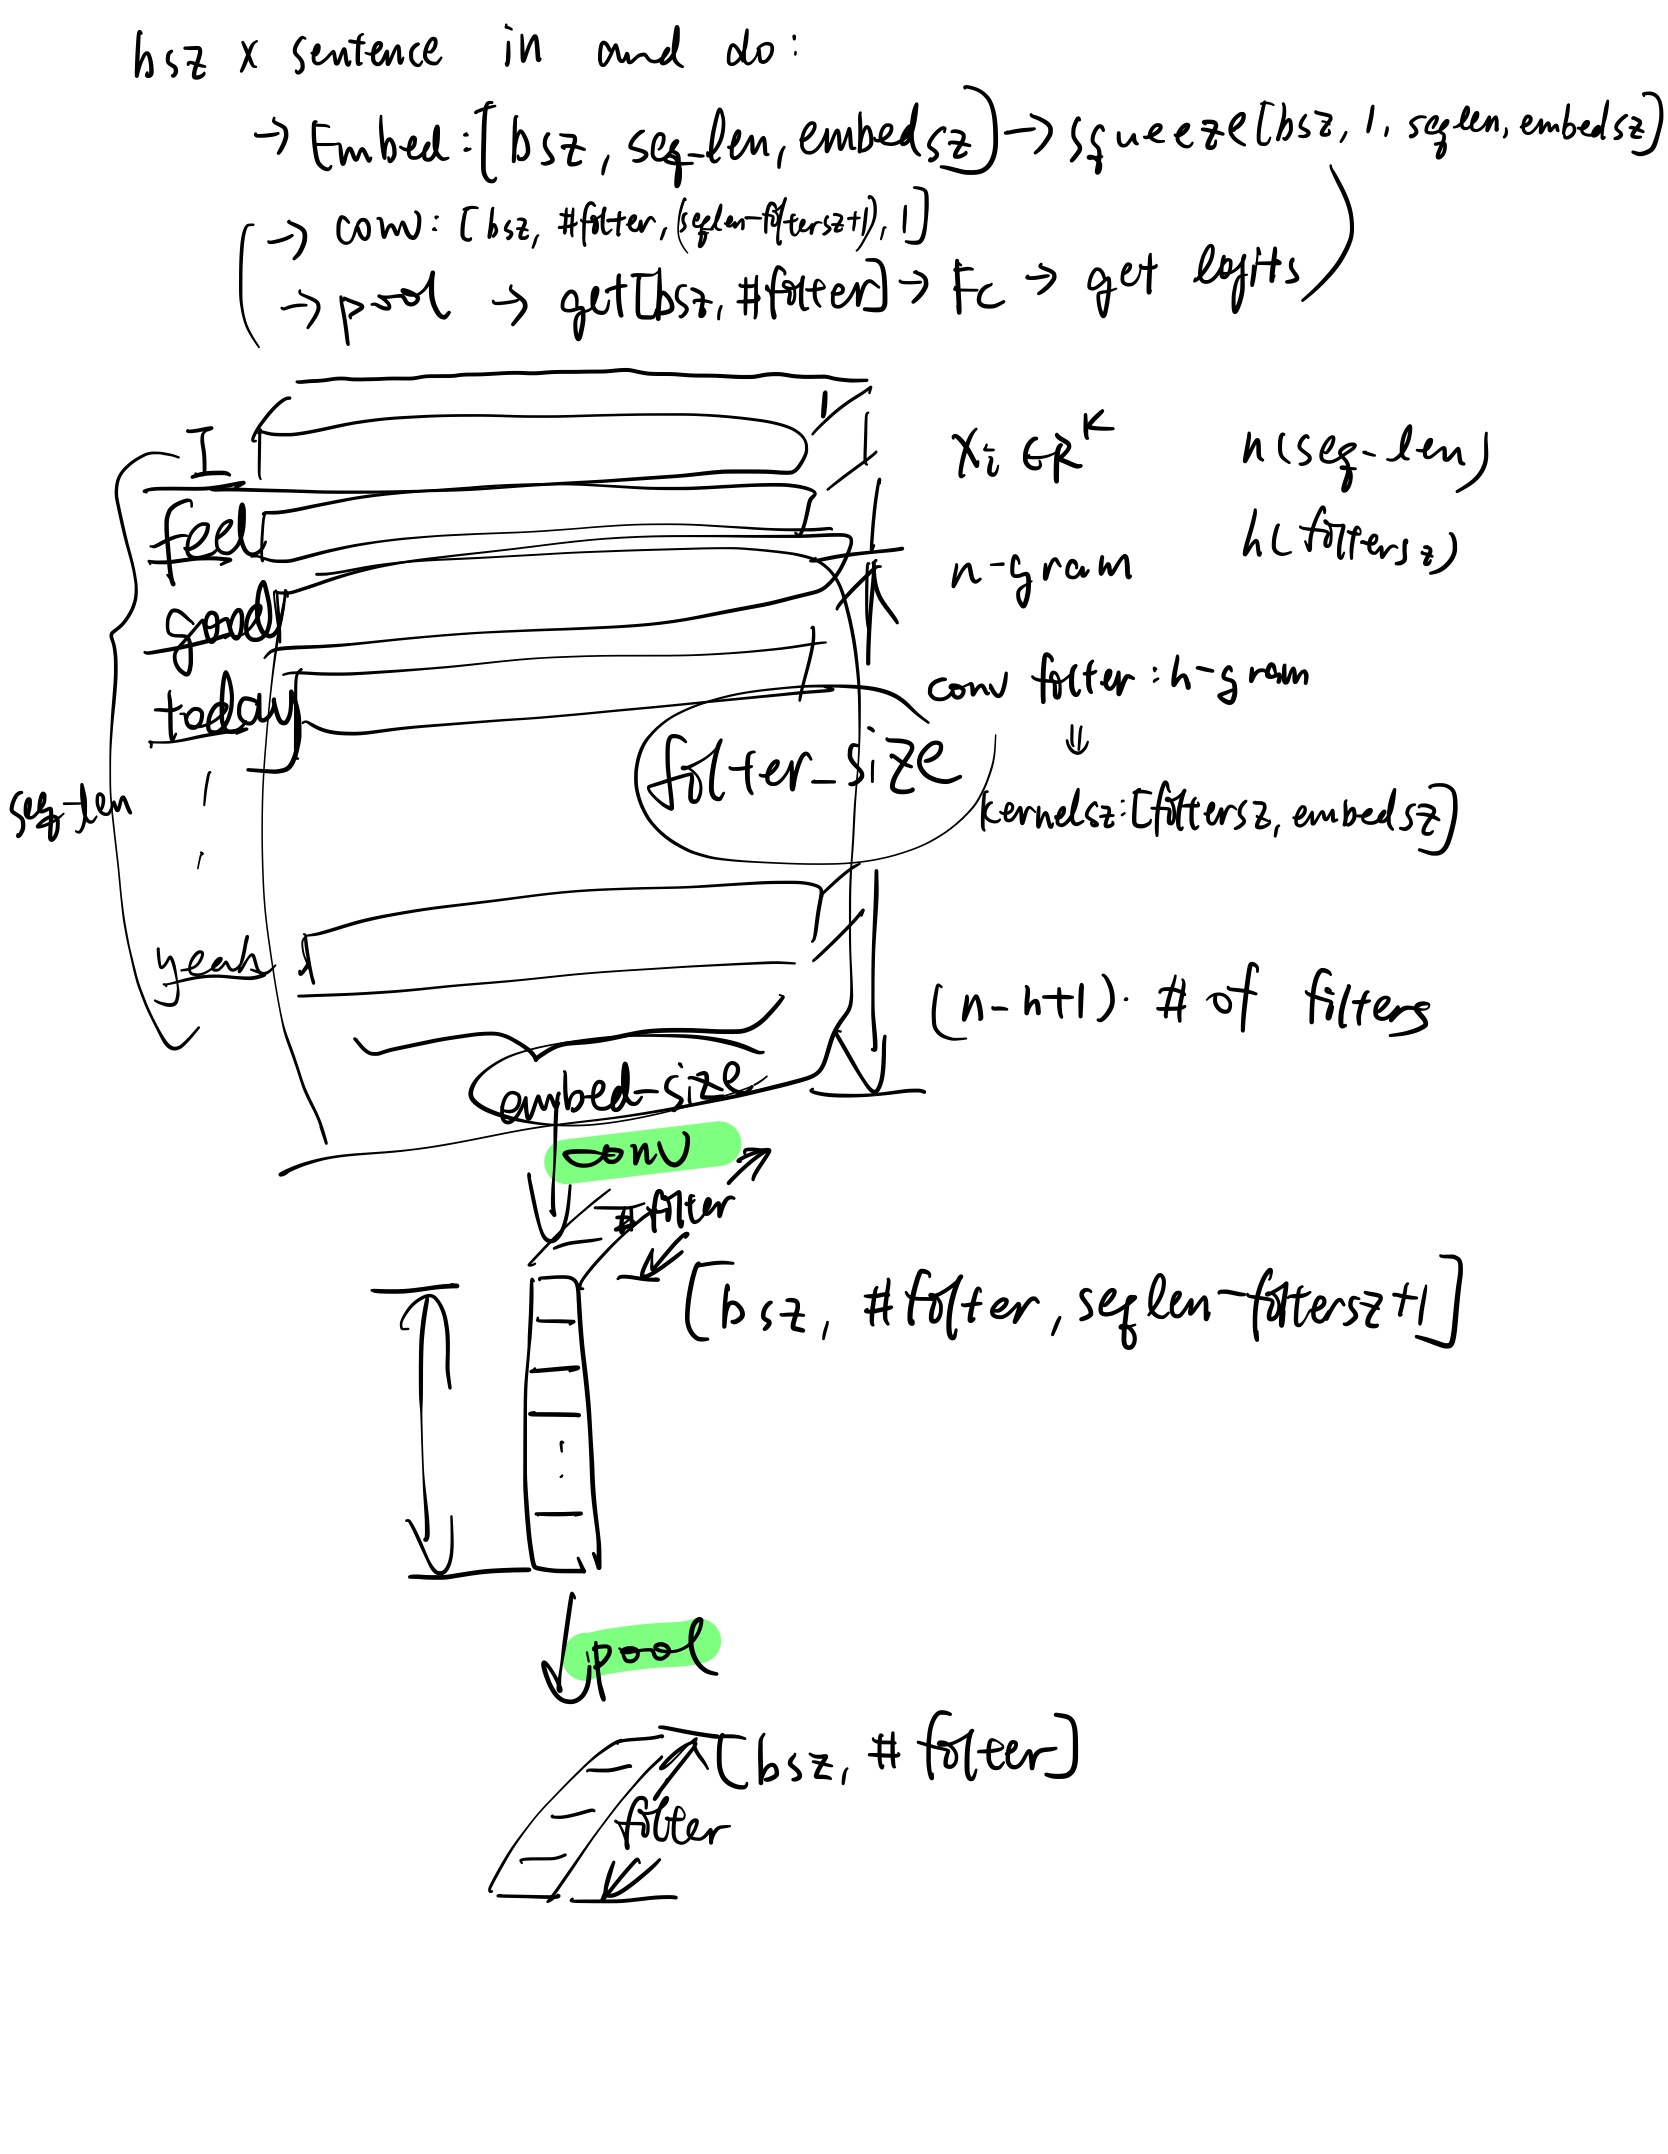 bsz x sentence in and do:
→ Embed: [bsz, seq_len, embedsz] → squeeze[bsz, 1, seqlen, embedsz]
→ conv: [bsz, #folter, (seqlen-foltersz+1), 1]
→ pool → get[bsz, #folter] → Fc → get logits
I
feel
good
today
yeah
seq-len
folter_size
embed-size
Xi ∈ R^K n(seq-len)
n-gram h(foltersz)
conv folter: h-gram
⇓
kernelsz: [foltersz, embedsz]
(n-h+1). # of filters
conv
#folter
[bsz, #folter, seqlen-foltersz+1]
pool
[bsz, #folter]
folter